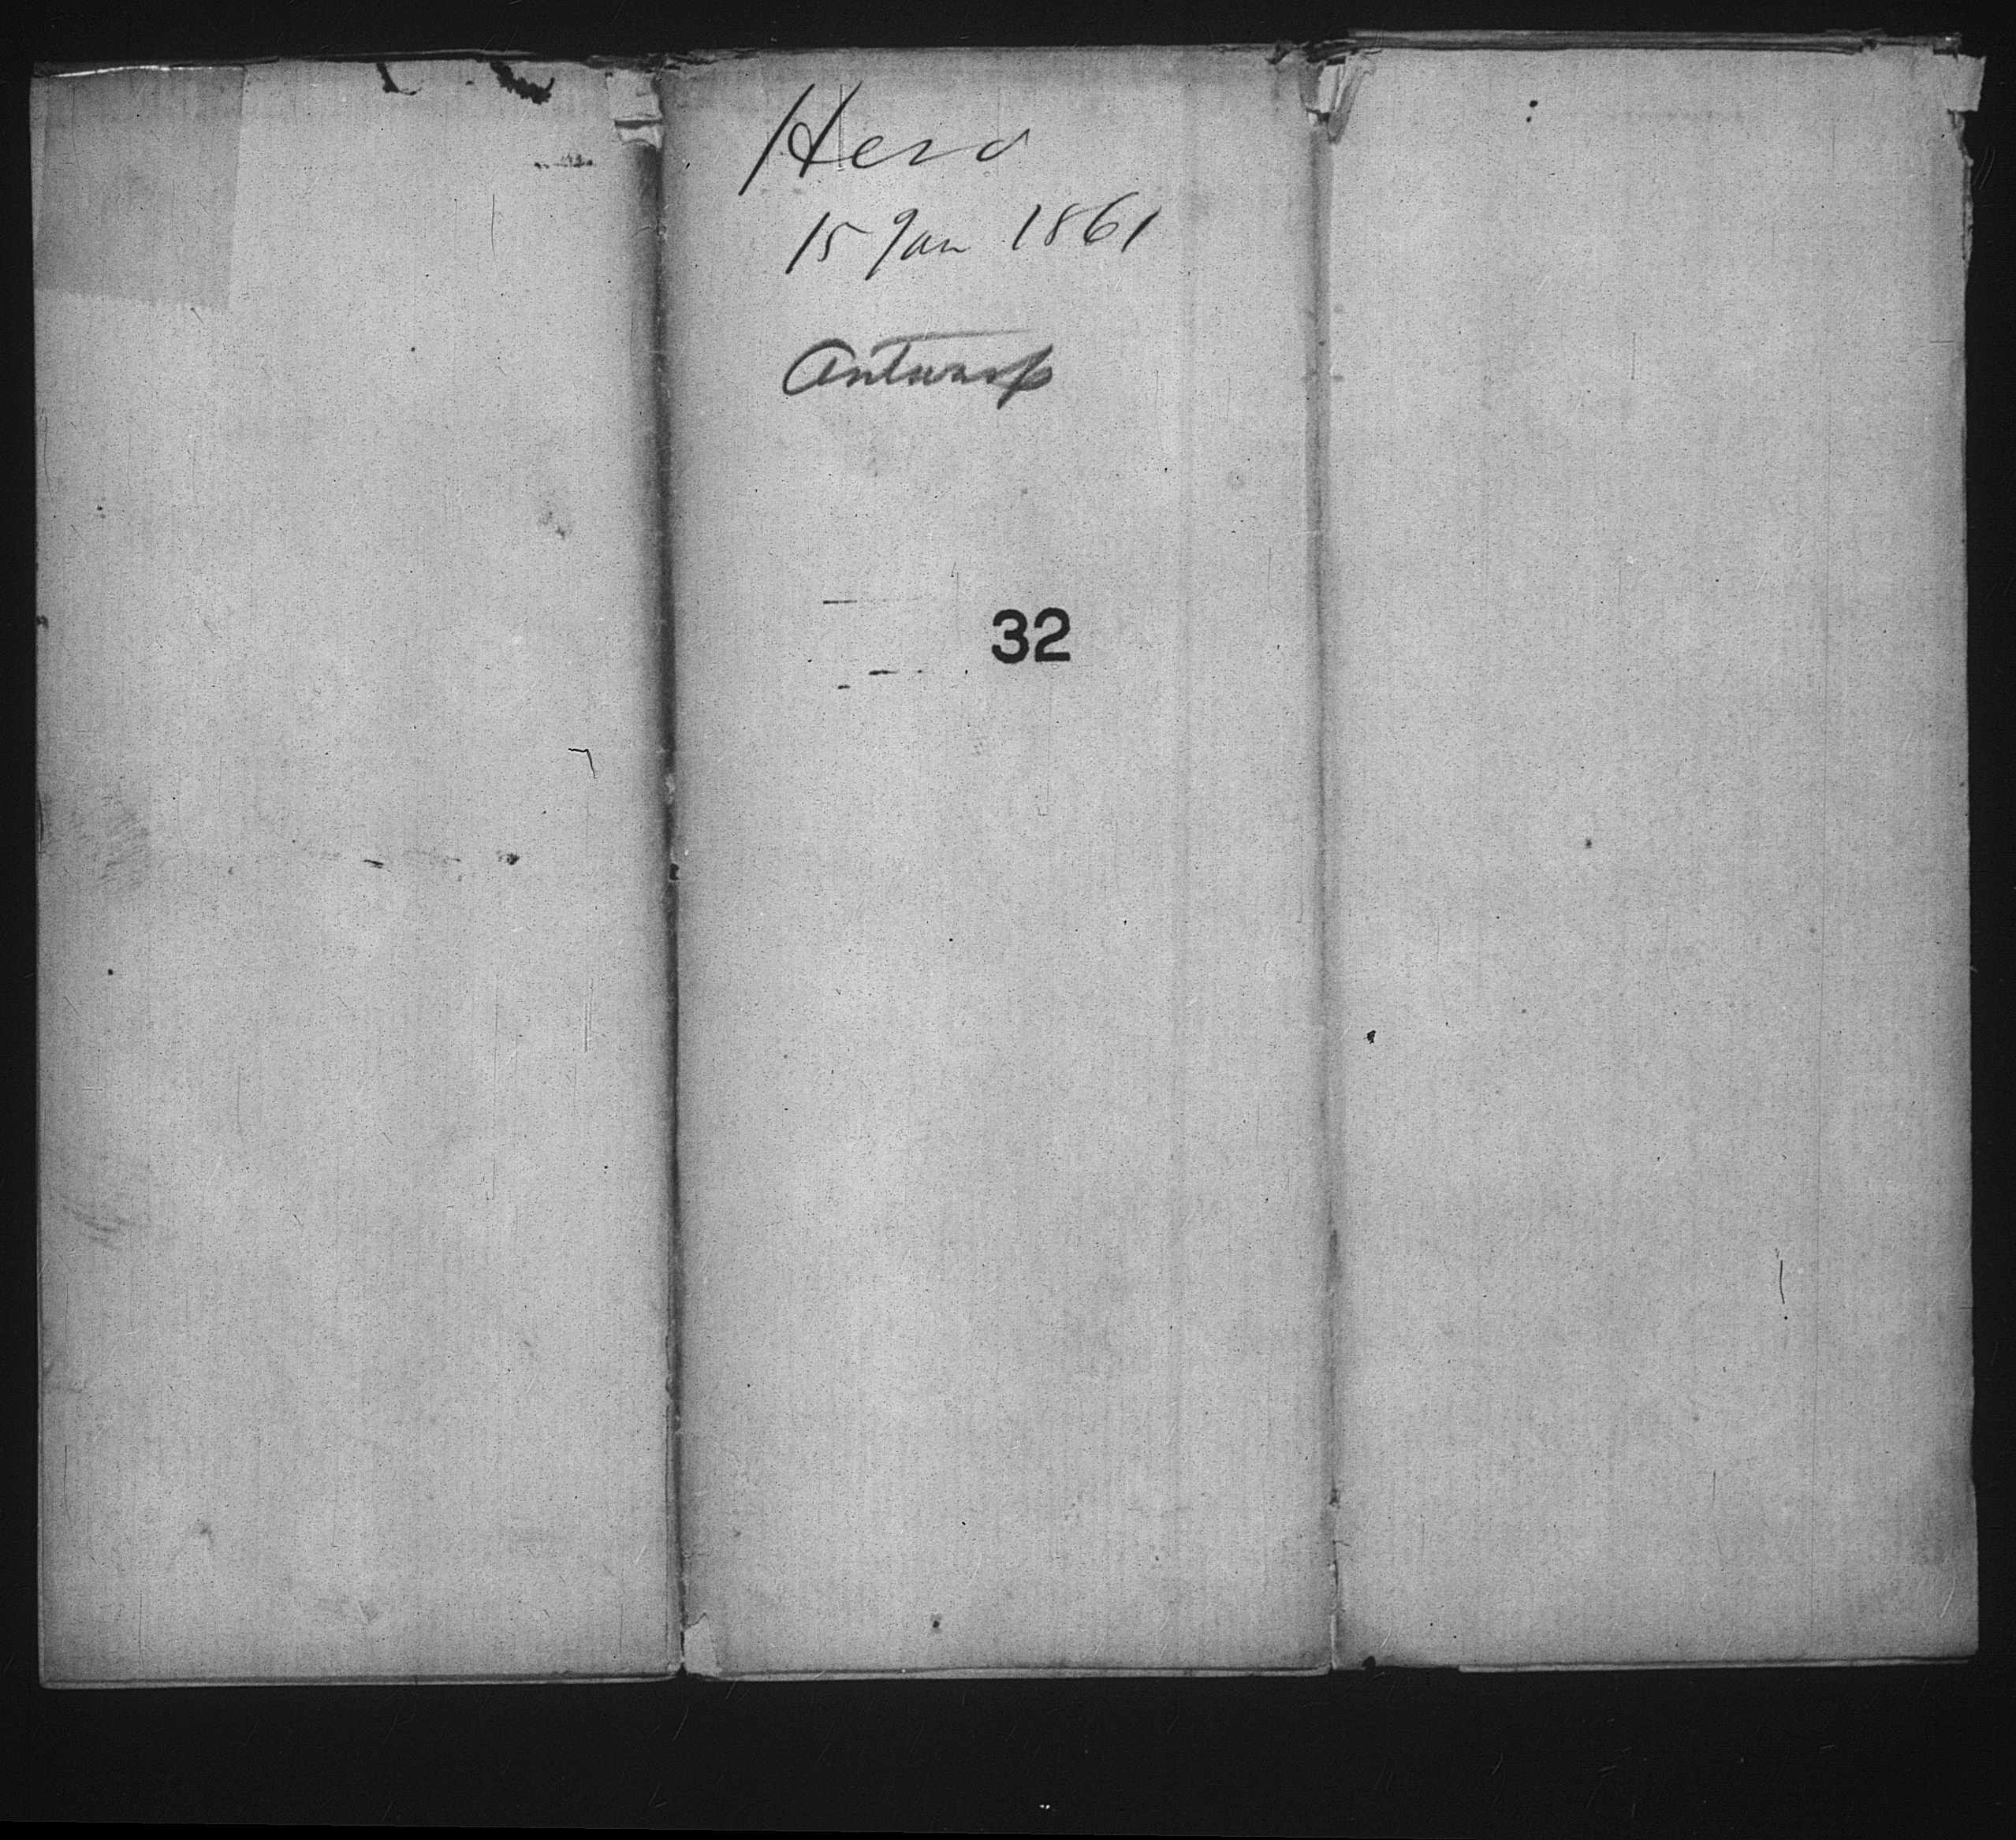 Hero
15 Jan 1861
Antwerp
32